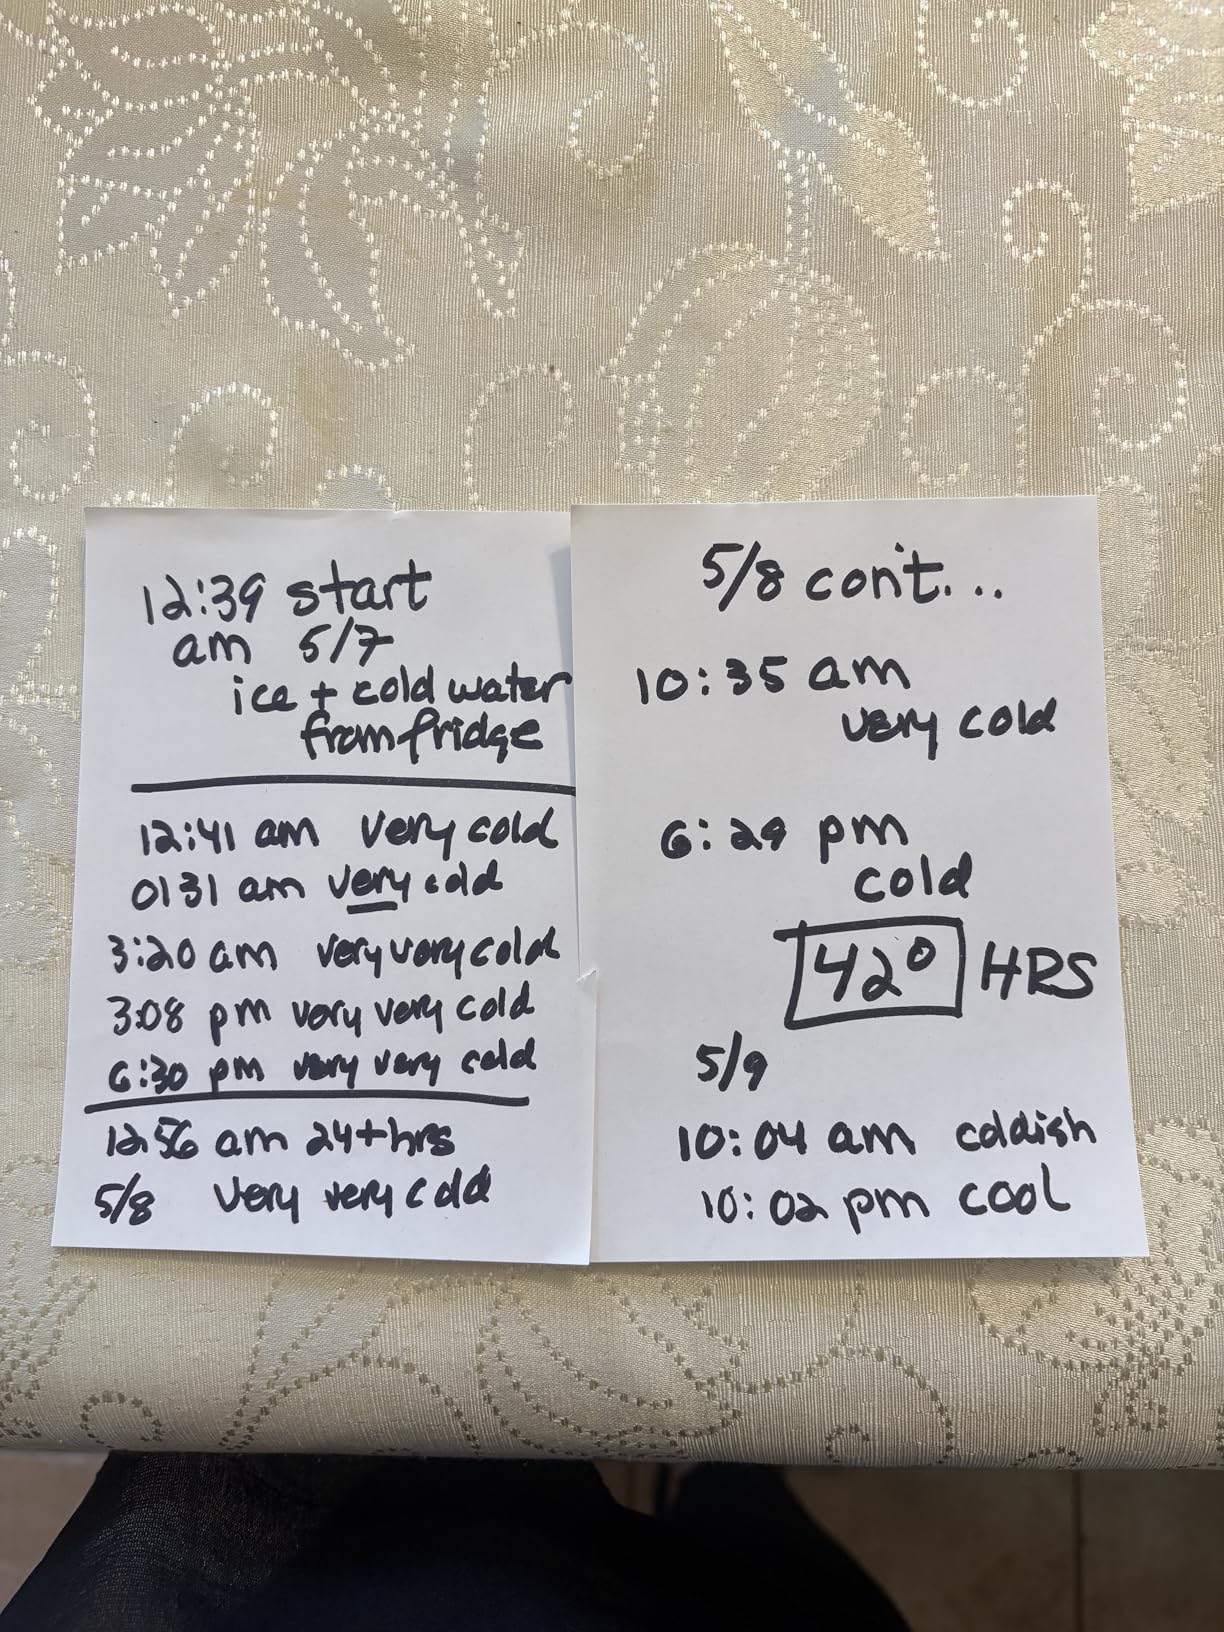 12:39 start
am 5/7
ice + cold water
from fridge
12:41 am very cold
0131 am very cold
3:20 am very very cold
3:08 pm very very cold
6:30 pm very very cold
12:56 am 24+hrs
5/8 very very cold
5/8 con't...
10:35 am
very cold
6:29 pm
cold
42° HRS
5/9
10:04 am coldish
10:02 pm cool